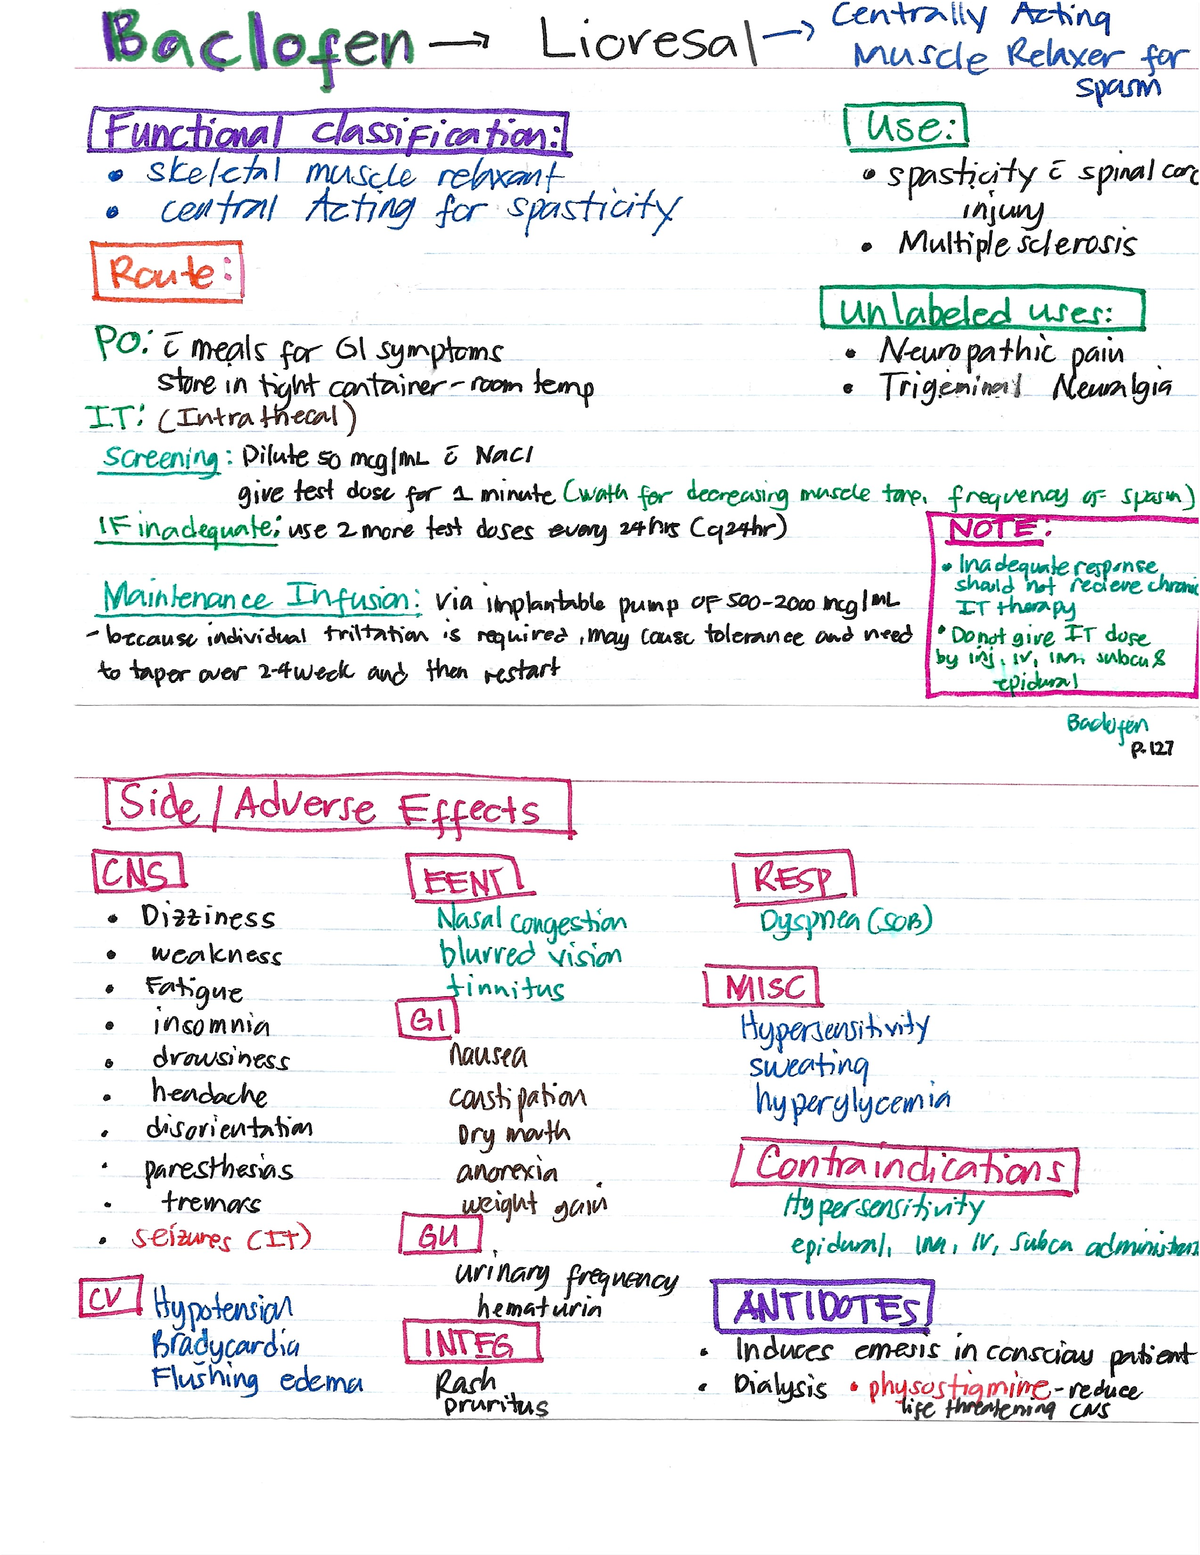 Baclofen → Lioresal → Centrally Acting
Muscle Relaxer for
spasm
Functional classification:
• skeletal muscle relaxant
• central Acting for spasticity
Use:
• spasticity c̄ spinal corc
injury
• Multiple sclerosis
Route:
PO: c̄ meals for GI symptoms
store in tight container - room temp
unlabeled uses:
• Neuropathic pain
• Trigeminal Neuralgia
IT: (Intrathecal)
Screening: Dilute 50 mcg/mL c̄ NaCl
give test dose for 1 minute (wath for decreasing muscle tone, frequency of spasm)
IF inadequate: use 2 more test doses every 24hrs (q24hr)
Maintenance Infusion: via implantable pump of 500-2000 mcg/mL
- because individual tritation is required, may cause tolerance and need
to taper over 2-4 week and then restart
NOTE:
• Inadequate response
should not recieve chronic
IT therapy
• Do not give IT dose
by inj, IV, IM, subcu &
epidural
Baclofen
p.127
Side / Adverse Effects
CNS
• Dizziness
• weakness
• Fatigue
• insomnia
• drowsiness
• headache
• disorientation
• paresthesias
• tremors
• seizures (IT)
CV
Hypotension
Bradycardia
Flushing edema
EENT
Nasal congestion
blurred vision
tinnitus
GI
nausea
constipation
Dry mouth
anorexia
weight gain
GU
urinary frequency
hematurin
INTEG
Rash
pruritus
RESP
Dyspnea (SOB)
MISC
Hypersensitivity
sweating
hyperglycemia
Contraindications
Hypersensitivity
epidural, IM, IV, subcu
ANTIDOTES
• Induces emesis in conscious patient
• Dialysis • physostigmine - reduce
life threatening CNS